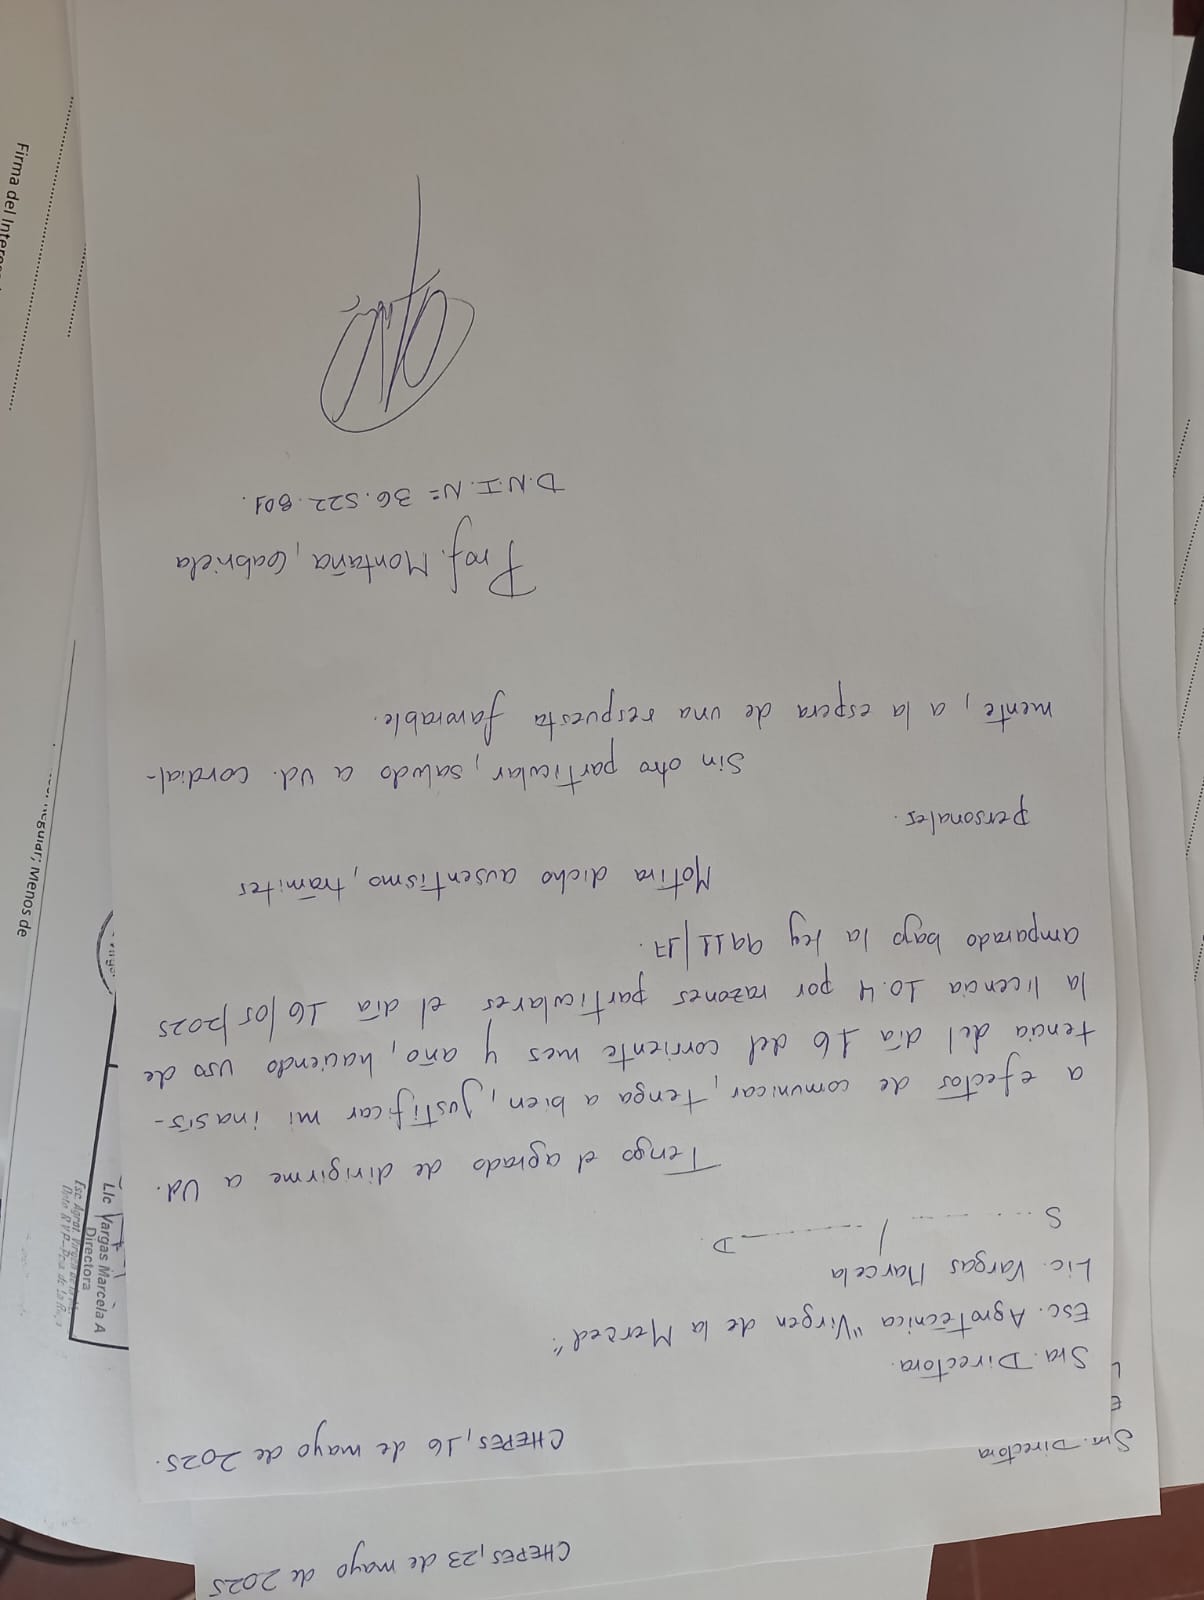 CHEPES, 23 de mayo de 2025
Sra. Directora
E
L
CHEPES, 16 de mayo de 2025.
Sra. Directora.
Esc. Agrotécnica "Virgen de la Merced".
Lic. Vargas Marcela
S.... ---- / ------- D.
Tengo el agrado de dirigirme a Ud.
a efectos de comunicar, tenga a bien, justificar mi inasis-
tencia del día 16 del corriente mes y año, haciendo uso de
la licencia 10.4 por razones particulares el día 16/05/2025
amparado bajo la ley 9911/17.
Motiva dicho ausentismo, trámites
personales.
Sin otro particular, saludo a Ud. cordial-
mente, a la espera de una respuesta favorable.
Prof. Montaña, Gabriela
D.N.I. Nº 36.522.801.
Lic Vargas Marcela A
Directora
Esc. Agrot. Virgen de la
Firma del
regular; Menos de